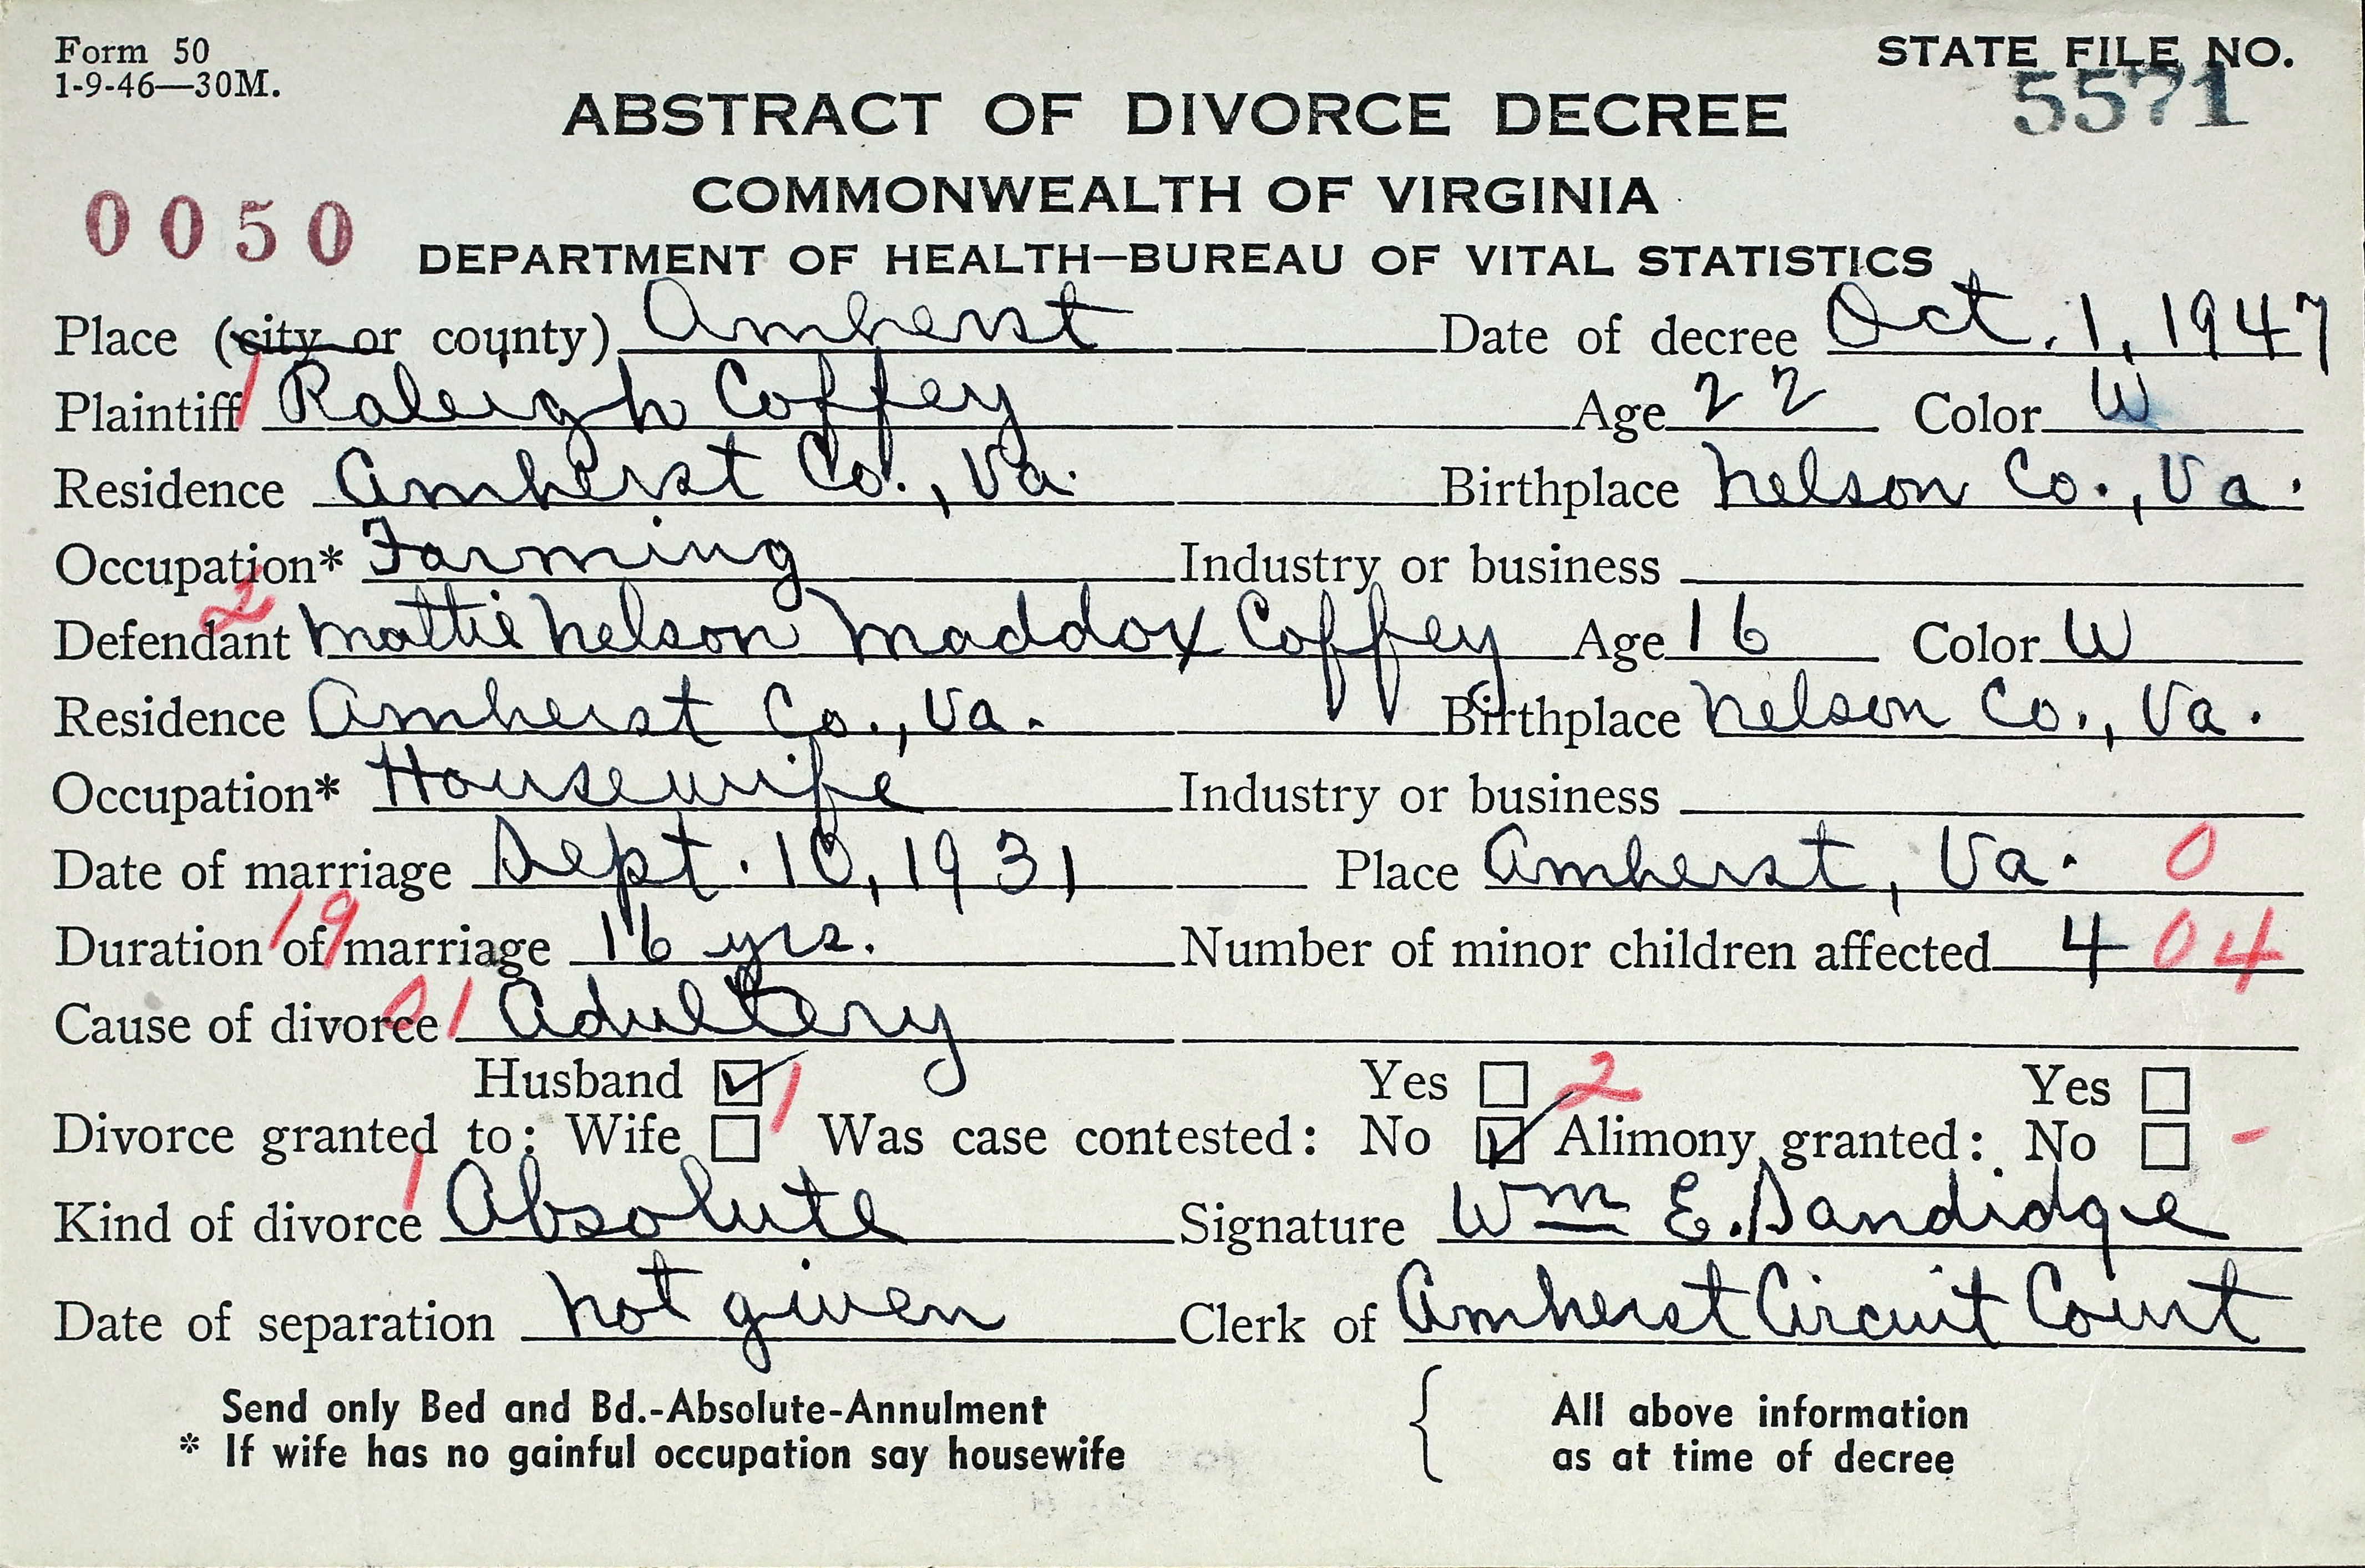 Form 50
1-9-46—30M.
STATE FILE NO.
5571
ABSTRACT OF DIVORCE DECREE
COMMONWEALTH OF VIRGINIA
0050
DEPARTMENT OF HEALTH—BUREAU OF VITAL STATISTICS
Place (city or county) Amherst Date of decree Oct. 1, 1947
Plaintiff 1 Raleigh Coffey Age 22 Color W
Residence Amherst Co., Va. Birthplace Nelson Co., Va.
Occupation* Farming Industry or business
2
Defendant Mattie Nelson Maddox Coffey Age 16 Color W
Residence Amherst Co., Va. Birthplace Nelson Co., Va.
Occupation* Housewife Industry or business
Date of marriage Sept. 10, 1931 Place Amherst, Va. 0
Duration of marriage 19 16 yrs. Number of minor children affected 4 04
Cause of divorce 01 Adultery
Husband 1 Yes 2 Yes
Divorce granted to: Wife Was case contested: No Alimony granted: No -
Kind of divorce 1 Absolute Signature Wm E. Sandidge
Date of separation not given Clerk of Amherst Circuit Court
Send only Bed and Bd.-Absolute-Annulment All above information
* If wife has no gainful occupation say housewife as at time of decree